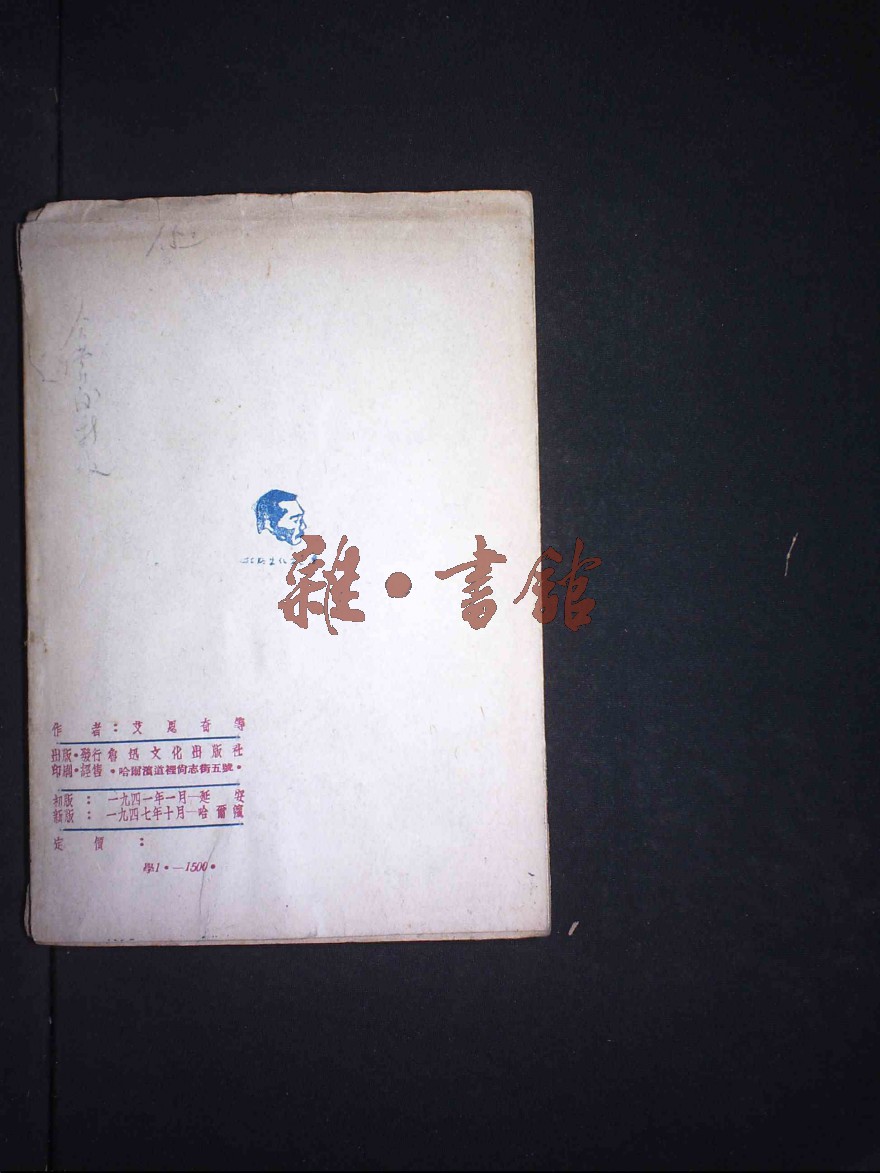 1.5
雜·書館
作者：艾思奇等
出版·發行 魯迅文化出版社
印刷·經售·哈爾濱道裡尙志街五號·
初版：一九四一年一月—延安
新版：一九四七年十月—哈爾濱
定價：
學1·—1500·